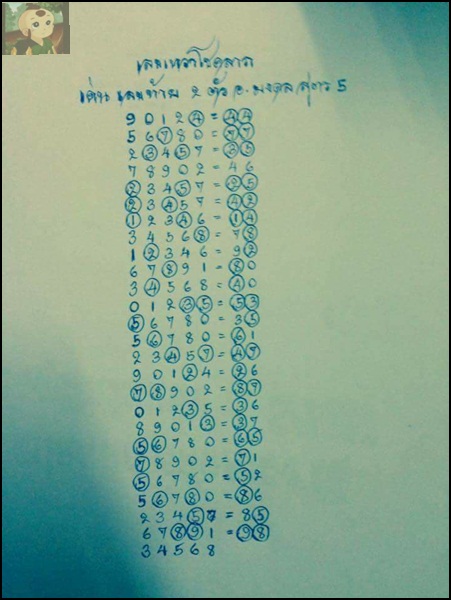 เด่น เลขท้าย 2 ตัว อ. มงคล สูตร 5
9 0 1 2 4 = 4 4
5 6 7 8 0 = 7 7
2 3 4 5 7 = 3 5
7 8 9 0 2 = 4 6
2 3 4 5 7 = 2 5
2 3 4 5 7 = 4 2
1 2 3 4 6 = 1 4
3 4 5 6 8 = 7 8
1 2 3 4 6 = 9 2
6 7 8 9 1 = 8 0
3 4 5 6 8 = 4 0
0 1 2 3 5 = 5 3
5 6 7 8 0 = 3 5
5 6 7 8 0 = 6 1
2 3 4 5 7 = 4 7
9 0 1 2 4 = 2 6
7 8 9 0 2 = 8 7
0 1 2 3 5 = 3 6
8 9 0 1 3 = 3 7
5 6 7 8 0 = 6 5
7 8 9 0 2 = 7 1
5 6 7 8 0 = 5 2
5 6 7 8 0 = 8 6
2 3 4 5 7 = 8 5
6 7 8 9 1 = 9 8
3 4 5 6 8